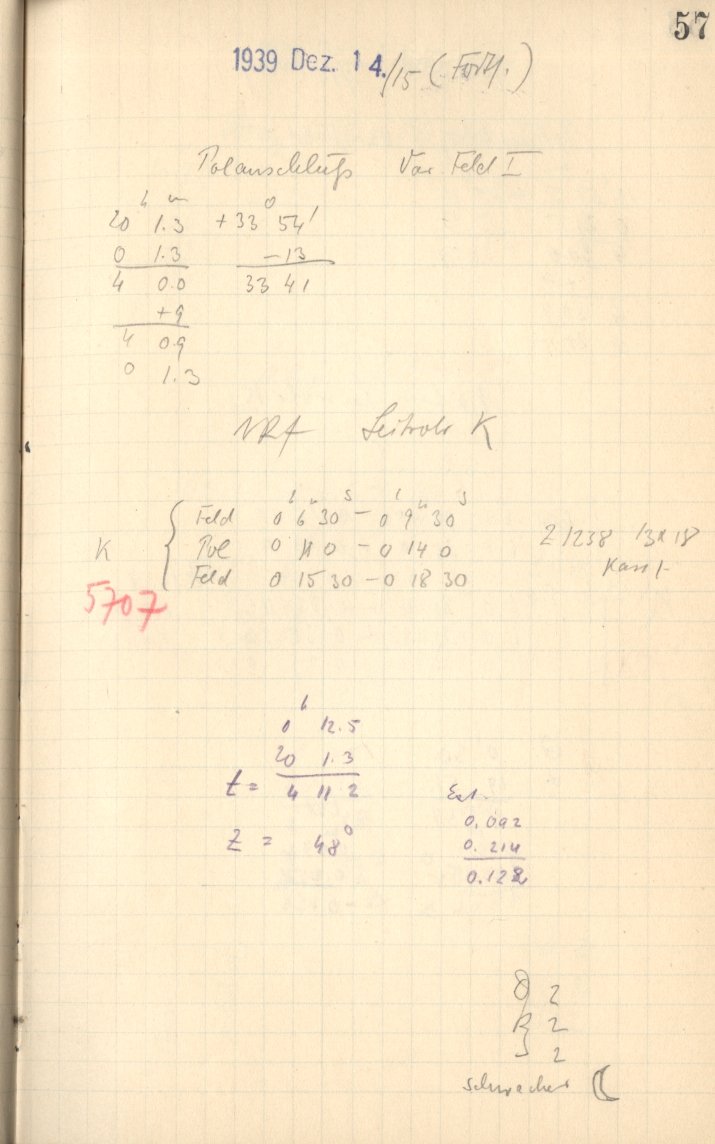 57
1939 Dez. 14./15 (Forts.)
Polanschluß Var. Feld I
h m o
20 1.3 +33 54'
0 1.3 -13
4 0.0 33 41
+9
4 0.9
0 1.3
Leitrohr K
h m s h m s
Feld 0 6 30 - 0 9 30
K Pol 0 11 0 - 0 14 0 Z 1238 13 x 18
Feld 0 15 30 - 0 18 30 Kass 1
5707
h
0 12.5
20 1.3
t = 4 11 2 Ext.
Z = 48° 0.092
0.214
0.122
2
R 2
S 2
schwacher ☾